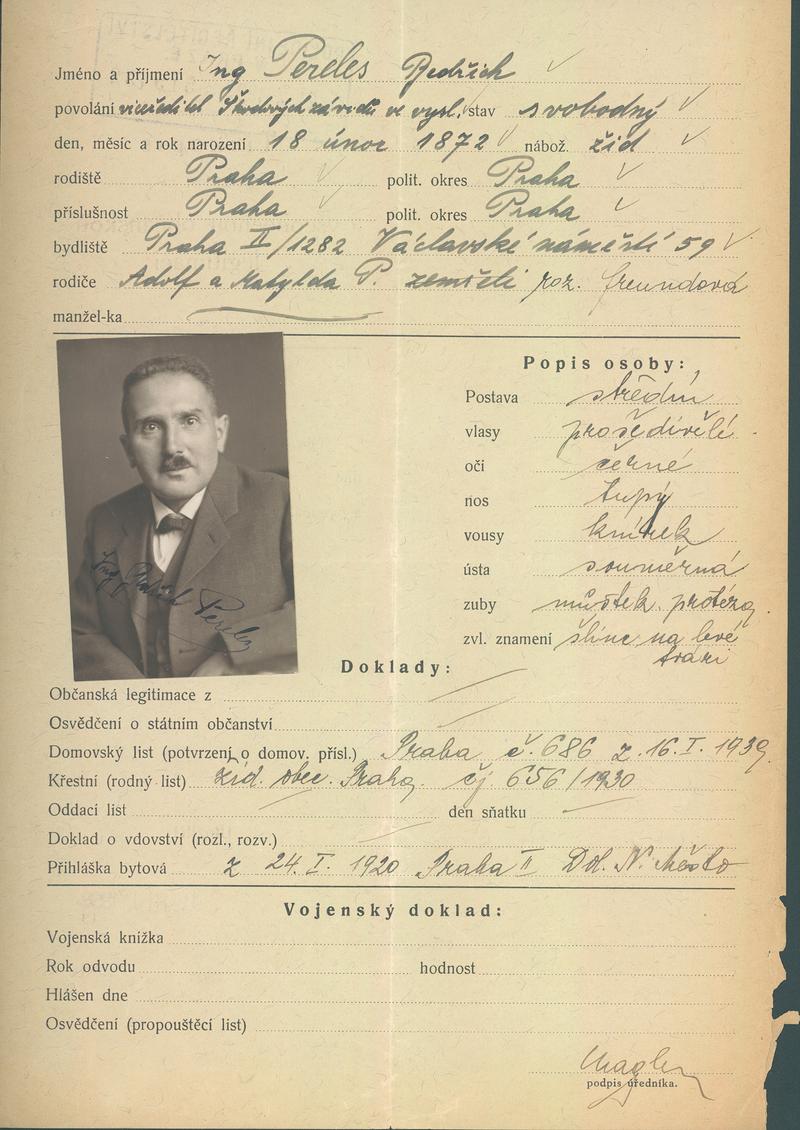 Jméno a příjmení Ing Pereles Bedřich
povolání viceředitel Škodových závodů ve výsl. stav svobodný
den, měsíc a rok narození 18 únor 1872 nábož. žid
rodiště Praha polit. okres Praha
příslušnost Praha polit. okres Praha
bydliště Praha II/1282 Václavské náměstí 59
rodiče Adolf a Matylda P. zemřeli roz. Freundová
manžel-ka
Popis osoby:
Postava střední
vlasy prošedivělé
oči černé
nos tupý
vousy knírek
ústa souměrná
zuby můstek, protéza
zvl. znamení na levé
tváři
Ing Bedřich Pereles
Doklady:
Občanská legitimace z
Osvědčení o státním občanství
Domovský list (potvrzení o domov. přísl.) Praha č. 686 z 16. I. 1939
Křestní (rodný list) žid. obec. Praha čj. 656/1930
Oddací list den sňatku
Doklad o vdovství (rozl., rozv.)
Přihláška bytová z 24. I. 1920 Praha II Dol. N. Město
Vojenský doklad:
Vojenská knížka
Rok odvodu hodnost
Hlášen dne
Osvědčení (propouštěcí list)
podpis úředníka.